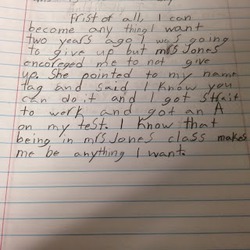 Frist of all, I can
become any thing I want
two years ago I was going
to give up but mrs Jones
encoreged me to not give
up. She pointed to my name
tag and said I know you
can do it and I got strait
to work and got an A
on my test. I know that
being in mrs Jones class makes
me be anything I want.